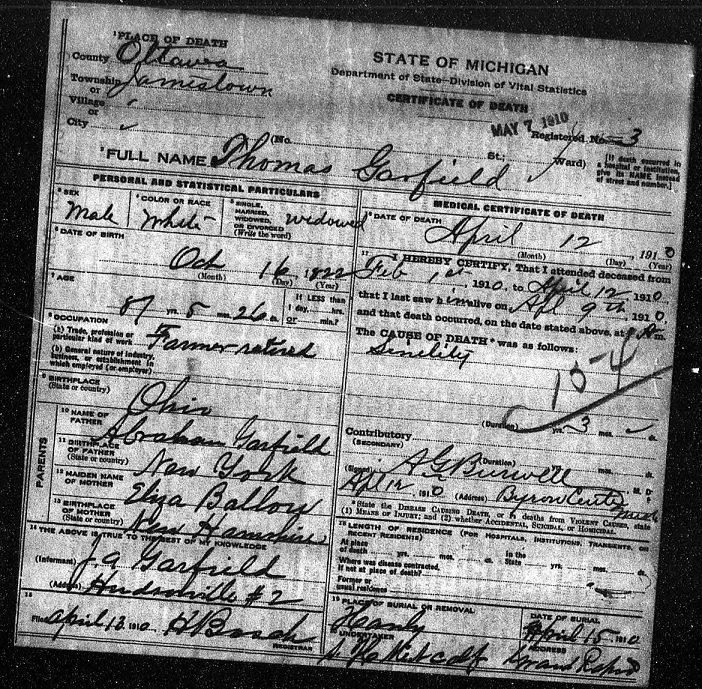 ¹PLACE OF DEATH
County Ottawa
Township Jamestown
or
Village
or
City
STATE OF MICHIGAN
Department of State—Division of Vital Statistics
CERTIFICATE OF DEATH
MAY 7 1910
Registered No. 3
(No. St.; Ward)
[If death occurred in a hospital or institution, give its NAME instead of street and number.]
²FULL NAME Thomas Garfield
PERSONAL AND STATISTICAL PARTICULARS
³SEX
Male
⁴COLOR OR RACE
White
⁵SINGLE, MARRIED, WIDOWED, OR DIVORCED (Write the word)
Widowed
⁶DATE OF BIRTH
Oct 16, 1822
(Month) (Day) (Year)
⁷AGE
87 yrs. 5 mos. 26 ds.
If LESS than 1 day, hrs. or min.?
⁸OCCUPATION
(a) Trade, profession or particular kind of work
Farmer retired
(b) General nature of industry, business, or establishment in which employed (or employer)
⁹BIRTHPLACE
(State or country)
Ohio
PARENTS
¹⁰NAME OF FATHER
Abraham Garfield
¹¹BIRTHPLACE OF FATHER
(State or country)
New York
¹²MAIDEN NAME OF MOTHER
Eliza Ballou
¹³BIRTHPLACE OF MOTHER
(State or country)
New Hampshire
¹⁴THE ABOVE IS TRUE TO THE BEST OF MY KNOWLEDGE
(Informant) J. A. Garfield
(Address) Hudsonville #2
¹⁵
Filed April 13, 1910 H Bosch
REGISTRAR
MEDICAL CERTIFICATE OF DEATH
DATE OF DEATH
April 12, 1910
(Month) (Day) (Year)
I HEREBY CERTIFY, That I attended deceased from
Feb 1st, 1910, to April 12 1910
that I last saw him alive on Apl 9th 1910
and that death occurred, on the date stated above, at m.
The CAUSE OF DEATH* was as follows:
Sinelity
154
(Duration) yrs. 3 mos. ds.
Contributory
(SECONDARY)
(Duration) yrs. mos. ds.
(Signed) A G Burwell M. D.
Apl 12, 1910 (Address) Byron Center Mich
*State the DISEASE CAUSING DEATH, or, in deaths from VIOLENT CAUSES, state
(1) MEANS OF INJURY; and (2) whether ACCIDENTAL, SUICIDAL, or HOMICIDAL.
LENGTH OF RESIDENCE (FOR HOSPITALS, INSTITUTIONS, TRANSIENTS, OR
RECENT RESIDENTS)
At place of death yrs. mos. ds. In the State yrs. mos. ds.
Where was disease contracted,
if not at place of death?
Former or
usual residence
PLACE OF BURIAL OR REMOVAL
Hanly
DATE OF BURIAL
April 15, 1910
UNDERTAKER
Metcalf
ADDRESS
Grand Rapids